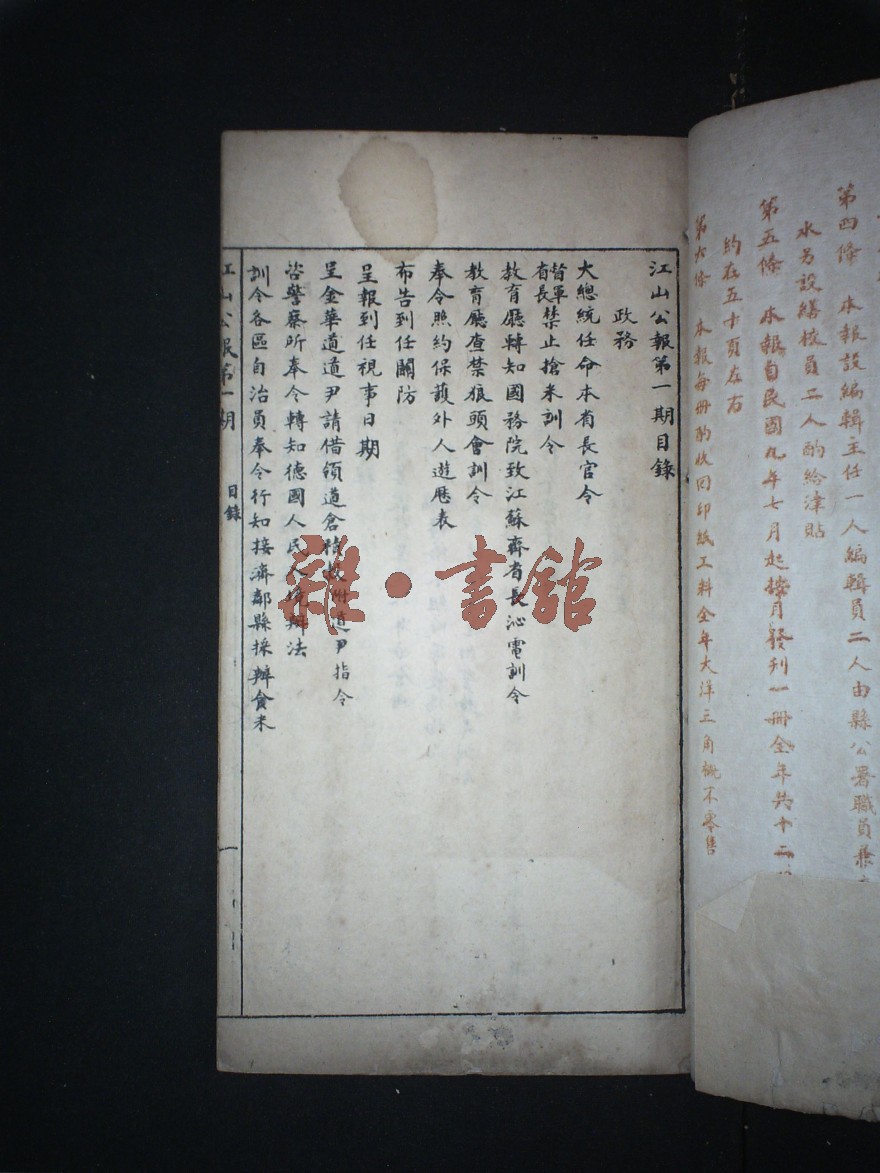 第四條 本報設編輯主任一人編輯員二人由縣公署職員兼
水另設繕校員二人酌給津貼
第五條 本報自民國九年七月起按月發刊一冊全年共十二
約在五十頁左右
第六條 本報每冊酌收回印紙工料全年大洋三角概不零售
江山公報第一期目錄
政務
大總統任命本省長官令
督軍省長禁止搶米訓令
教育廳轉知國務院致江蘇齊省長沁電訓令
教育廳查禁狼頭會訓令
奉令照約保護外人遊歷表
布告到任關防
呈報到任視事日期
呈金華道道尹請借領道倉 道尹指令
咨警察所奉令轉知德國人民入 辦法
訓令各區自治員奉令行知接濟鄰縣採辦食米
江山公報第一期 目錄 一
雜·書館